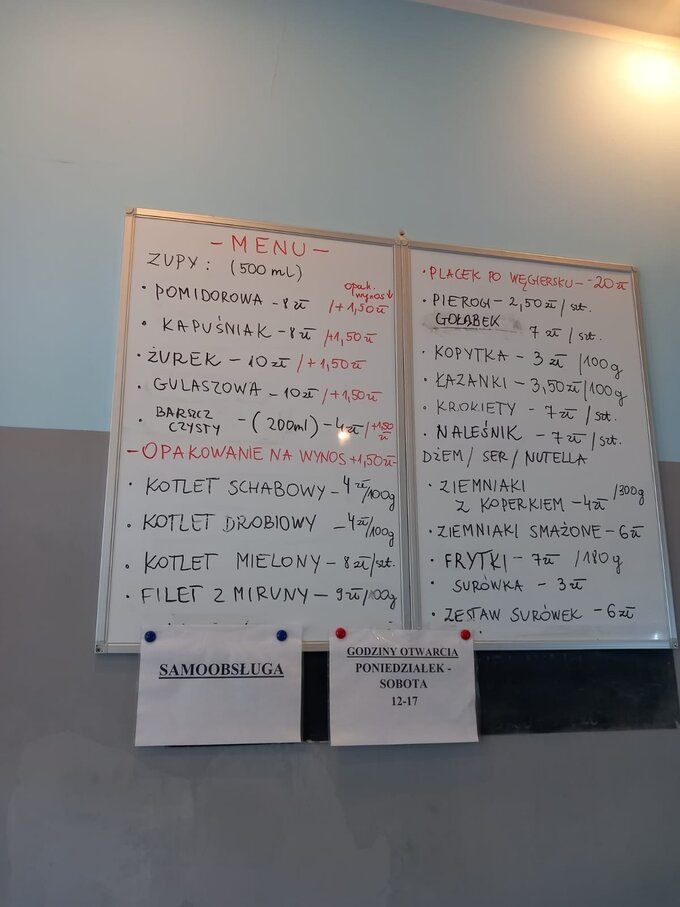 - MENU -
ZUPY: (500 ml)
opak.
wynos ↓
• POMIDOROWA - 8 zł /+1,50 zł
• KAPUŚNIAK - 8 zł /+1,50 zł
• ŻUREK - 10 zł /+1,50 zł
• GULASZOWA - 10 zł /+1,50 zł
• BARSZCZ CZYSTY - (200ml) - 4 zł /+1,50 zł
- OPAKOWANIE NA WYNOS +1,50 zł-
• KOTLET SCHABOWY - 4 zł/100g
• KOTLET DROBIOWY - 4 zł/100g
• KOTLET MIELONY - 8 zł/szt.
• FILET Z MIRUNY - 9 zł/100g
• PLACEK PO WĘGIERSKU - - 20 zł
• PIEROGI - 2,50 zł / szt.
GOŁĄBEK 7 zł / szt.
• KOPYTKA - 3 zł /100g
• ŁAZANKI - 3,50 zł/100g
• KROKIETY - 7 zł /szt.
• NALEŚNIK - 7 zł/szt.
DŻEM / SER / NUTELLA
• ZIEMNIAKI
Z KOPERKIEM - 4 zł /300g
• ZIEMNIAKI SMAŻONE - 6 zł
• FRYTKI - 7 zł /180g
• SURÓWKA - 3 zł
• ZESTAW SURÓWEK - 6 zł
SAMOOBSŁUGA
GODZINY OTWARCIA
PONIEDZIAŁEK -
SOBOTA
12-17